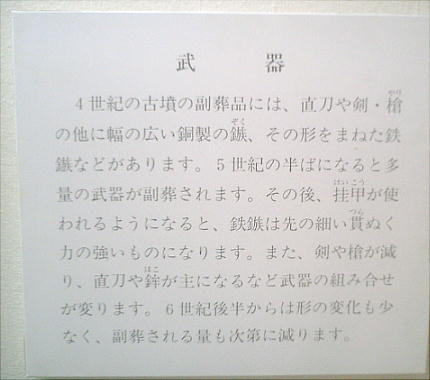 武器
４世紀の古墳の副葬品には、直刀や剣・槍
の他に幅の広い銅製の鏃、その形をまねた鉄
鏃などがあります。５世紀の半ばになると多
量の武器が副葬されます。その後、挂甲が使
われるようになると、鉄鏃は先の細い貫ぬく
力の強いものになります。また、剣や槍が減
り、直刀や鉾が主になるなど武器の組み合せ
が変ります。６世紀後半からは形の変化も少
なく、副葬される量も次第に減ります。